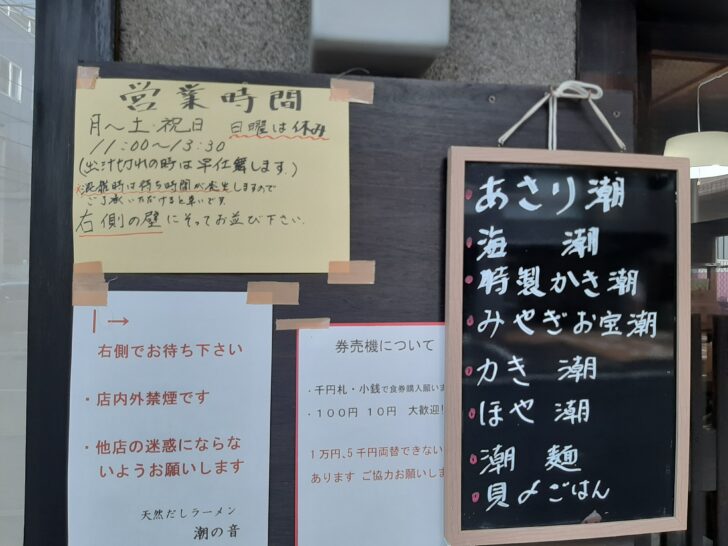 営業時間
月～土・祝日 日曜は休み
11:00～13:30
(出汁切れの時は早仕舞します。)
※混雑時は待ち時間が発生しますので
ご了承いただけると幸いです。
右側の壁にそってお並び下さい.
|→
右側でお待ち下さい
・店内外禁煙です
・他店の迷惑にならな
いようお願いします
天然だしラーメン
潮の音
券売機について
・千円札・小銭で食券購入願いま
・100円 10円 大歓迎!
1万円、5千円両替できない
あります ご協力お願いしま
・あさり潮
・海 潮
・特製かき潮
・みやぎお宝潮
・かき 潮
・ほや 潮
・潮 麺
・貝〆ごはん